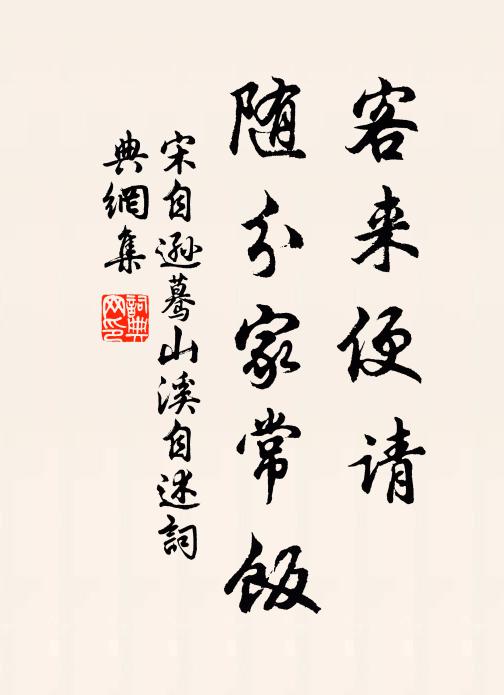 客来便请
随分家常飯
宋自遜驀山溪自述詞
典網集
詞典网印